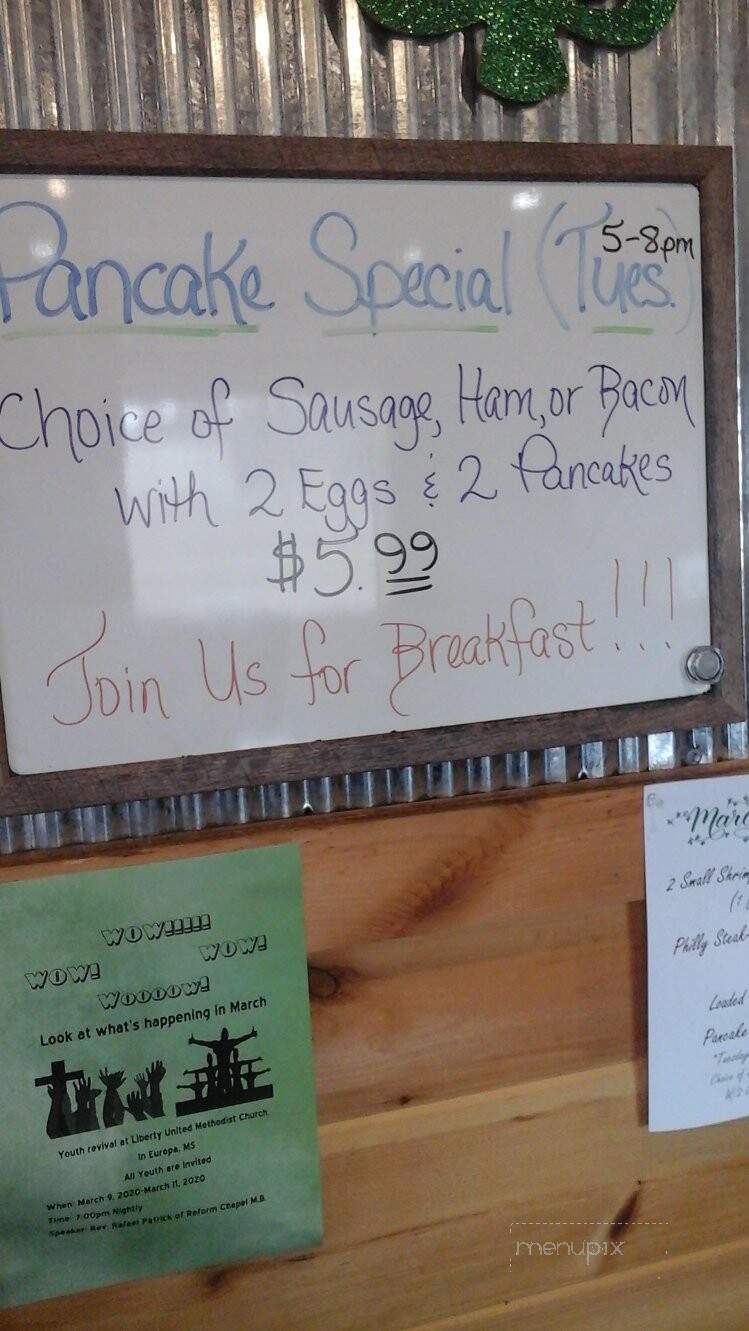 Pancake Special (Tues.)
5-8pm
Choice of Sausage, Ham, or Bacon
with 2 Eggs & 2 Pancakes
$5.99
Join Us for Breakfast!!!
WOW!!!!!!
WOW!
WOW!
WOOOOW!
Look at what's happening in March
Youth revival at Liberty United Methodist Church
in Europa, MS
All Youth are Invited
When: March 9, 2020-March 11, 2020
Time: 7:00pm Nightly
Speaker: Rev. Rafael Patrick of Reform Chapel M.B.
2 Small
Philly Steak
Loaded
Pancake
Choice of
menupix